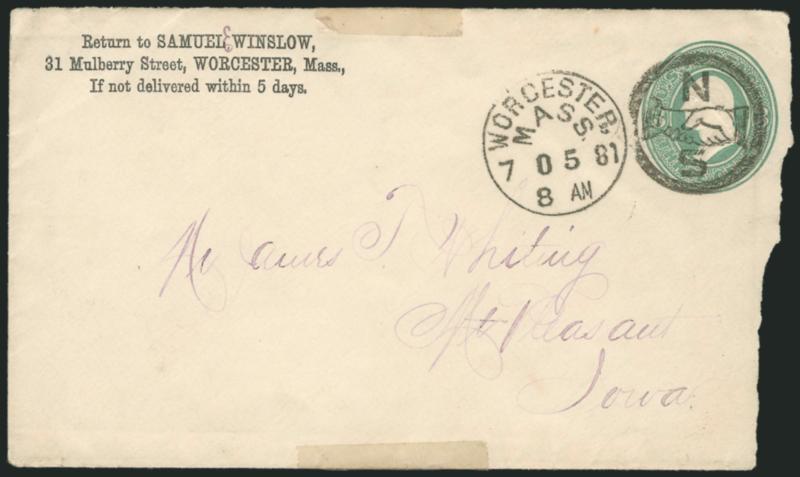 Return to SAMUEL E WINSLOW,
31 Mulberry Street, WORCESTER, Mass.,
If not delivered within 5 days.
WORCESTER,
MASS.
7 05 81
8 AM
N
S
James T. Whiting
Mt Pleasant
Iowa